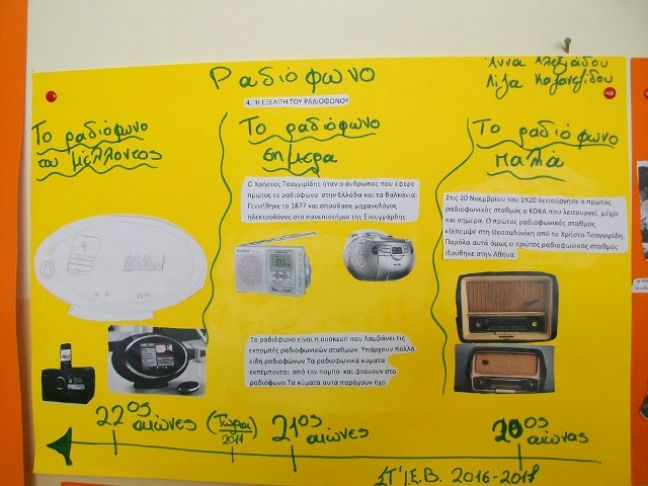 Ραδιόφωνο
Άννα Αλεξιάδου
Λίζα Καζανεζίδου
4. Η ΕΞΕΛΙΞΗ ΤΟΥ ΡΑΔΙΟΦΩΝΟΥ
Το ραδιόφωνο
του μέλλοντος
Το ραδιόφωνο
σήμερα
Ο Χρήστος Τσαγγιρίδης ήταν ο άνθρωπος που έφερε
πρώτος το ραδιόφωνο στην Ελλάδα και τα Βαλκάνια.
Γεννήθηκε το 1877 και σπούδασε μηχανολόγος
ηλεκτρολόγος στο πανεπιστήμιο της Στουγγάρδης.
Το ραδιόφωνο είναι η συσκευή που λαμβάνει τις
εκπομπές ραδιοφωνικών σταθμών. Υπάρχουν πολλά
είδη ραδιοφώνων. Τα ραδιοφωνικά κύματα
εκπέμπονται από τον πομπό και φτάνουν στο
ραδιόφωνο. Τα κύματα αυτά παράγουν ήχο
Το ραδιόφωνο
παλιά
Στις 20 Νοεμβρίου του 1920 λειτούργησε ο πρώτος
ραδιοφωνικός σταθμός ο KDKA που λειτουργεί μέχρι
και σήμερα. Ο πρώτος ραδιοφωνικός σταθμός
εξέπεμψε στη Θεσσαλονίκη από το Χρήστο Τσαγγιρίδη.
Παρόλα αυτά όμως ο πρώτος ραδιοφωνικός σταθμός
ιδρύθηκε στην Αθήνα.
22ος
αιώνες
(Τώρα)
2017
21ος
αιώνες
20ος
αιώνας
ΣΤ'Ι.Ε.Β. 2016-2017